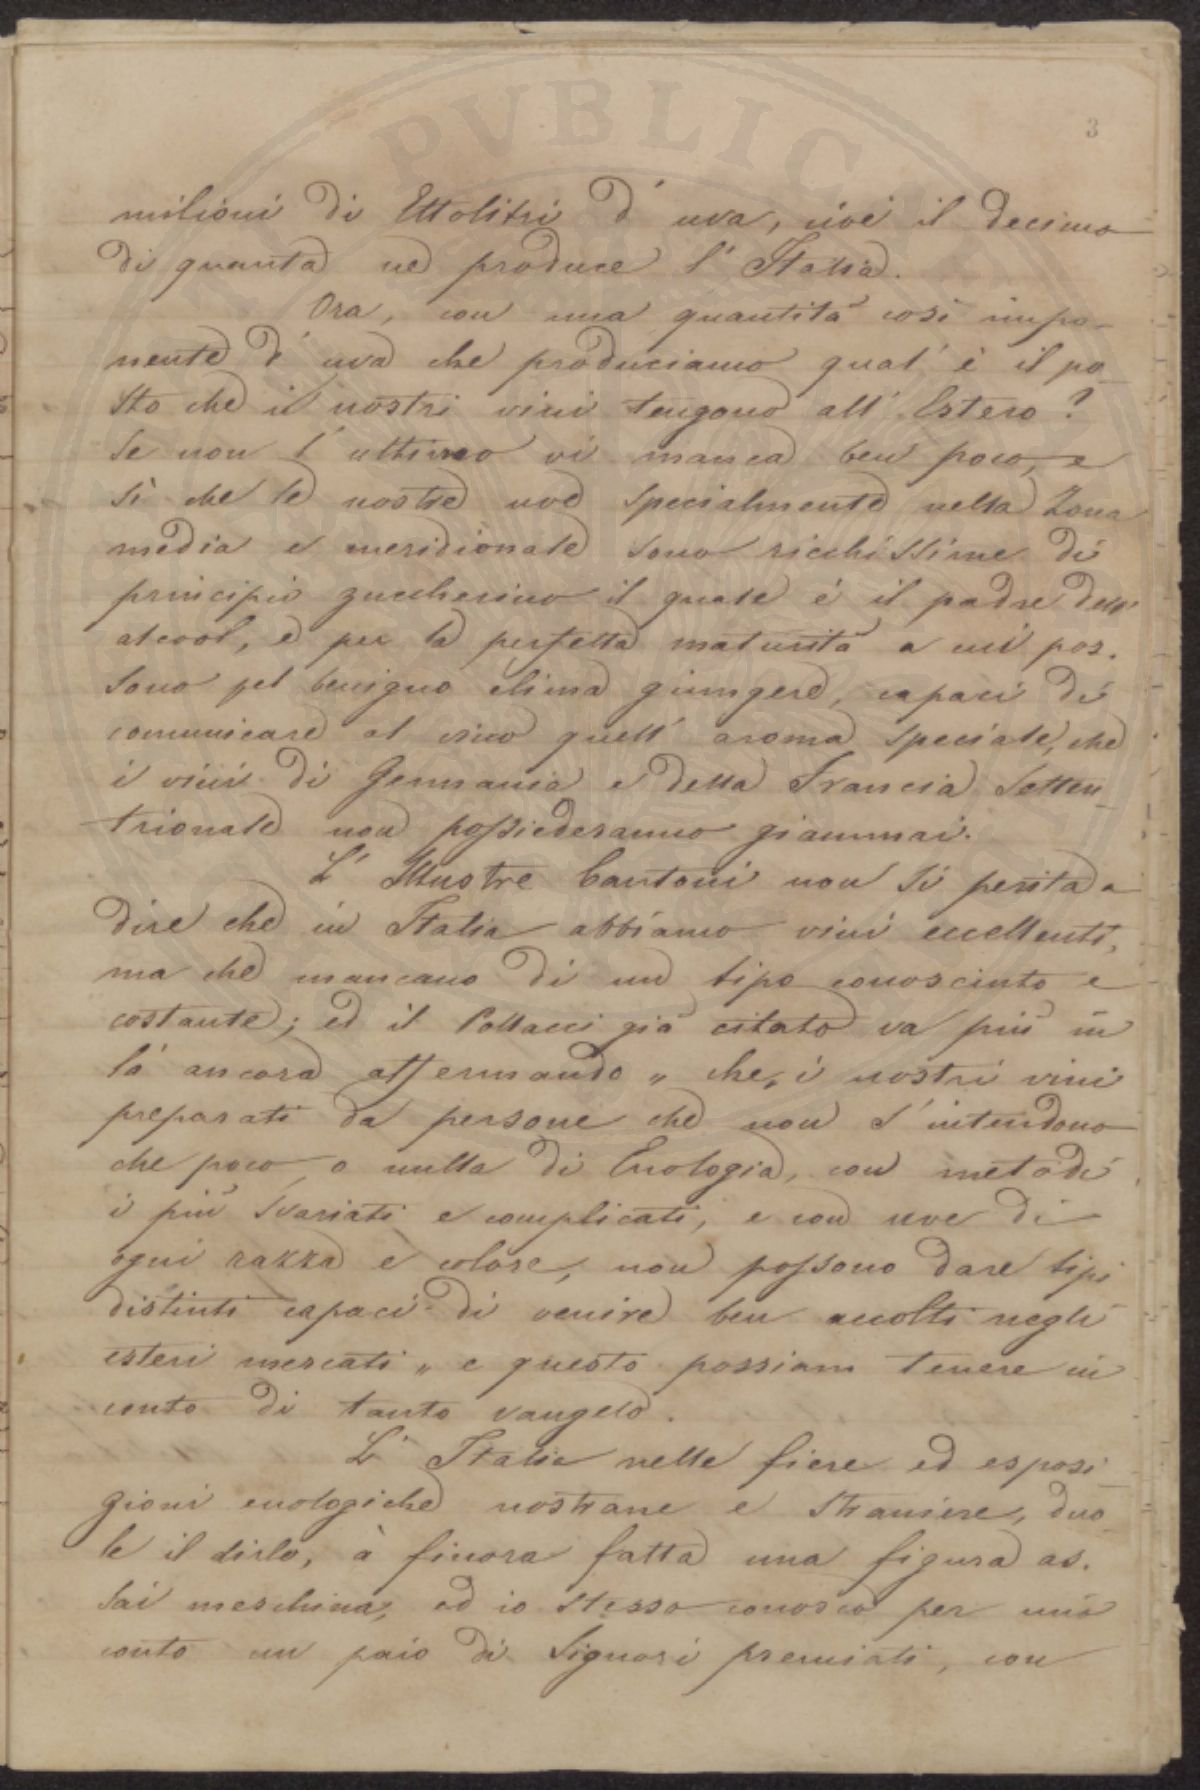 3
milioni di Ettolitri d' uva, cioè il decimo
di quanta ne produce l' Italia.
Ora, con una quantità così impo-
nente d' uva che produciamo qual' è il po-
sto che i nostri vini tengono all' Estero?
Se non l' ultimo vi manca ben poco, e
sì che le nostre uve specialmente nella Zona
media e meridionale sono ricchissime di
principio zuccherino il quale è il padre dell'
alcool, e per la perfetta maturità a cui pos-
sono pel benigno clima giungere, capaci di
comunicare al vino quell' aroma speciale, che
i vini di Germania e della Francia Setten-
trionale non possiederanno giammai.
L' Illustre Cantoni non si perita a
dire che in Italia abbiamo vini eccellenti,
ma che mancano di un tipo conosciuto e
costante; ed il Pollacci già citato va più in
là ancora affermando „ che, i nostri vini
preparati da persone che non s'intendono
che poco o nulla di Enologia, con metodi
i più svariati e complicati, e con uve di
ogni razza e colore, non possono dare tipi
distinti capaci di venire ben accolti negli
esteri mercati „ e questo possiam tenere in
conto di tanto vangelo.
L' Italia nelle fiere ed esposi-
zioni enologiche nostrane e straniere, duo-
le il dirlo, à finora fatta una figura as-
sai meschina, ed io stesso conosco per mio
conto un paio di Signori premiati, con
PVBLIC